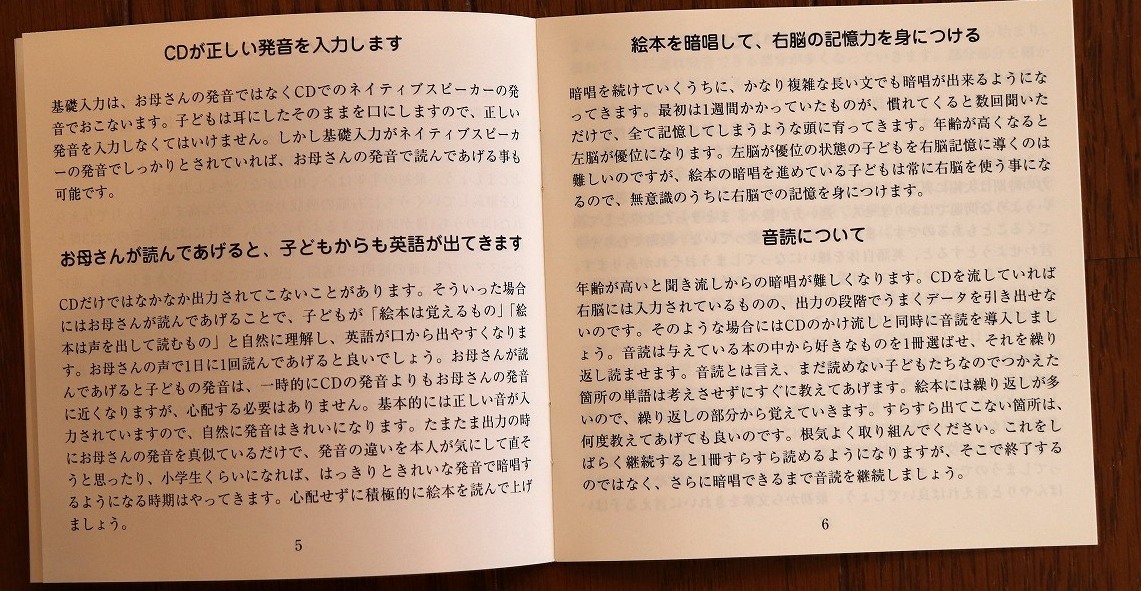 CDが正しい発音を入力します
基礎入力は、お母さんの発音ではなくCDでのネイティブスピーカーの発
音でおこないます。子どもは耳にしたそのままを口にしますので、正しい
発音を入力しなくてはいけません。しかし基礎入力がネイティブスピーカ
ーの発音でしっかりとされていれば、お母さんの発音で読んであげる事も
可能です。
お母さんが読んであげると、子どもからも英語が出てきます
CDだけではなかなか出力されてこないことがあります。そういった場合
にはお母さんが読んであげることで、子どもが「絵本は覚えるもの」「絵
本は声を出して読むもの」と自然に理解し、英語が口から出やすくなりま
す。お母さんの声で1日に1回読んであげると良いでしょう。お母さんが読
んであげると子どもの発音は、一時的にCDの発音よりもお母さんの発音
に近くなりますが、心配する必要はありません。基本的には正しい音が入
力されていますので、自然に発音はきれいになります。たまたま出力の時
にお母さんの発音を真似ているだけで、発音の違いを本人が気にして直そ
うと思ったり、小学生くらいになれば、はっきりときれいな発音で暗唱す
るようになる時期はやってきます。心配せずに積極的に絵本を読んで上げ
ましょう。
5
絵本を暗唱して、右脳の記憶力を身につける
暗唱を続けていくうちに、かなり複雑な長い文でも暗唱が出来るようにな
ってきます。最初は1週間かかっていたものが、慣れてくると数回聞いた
だけで、全て記憶してしまうような頭に育ってきます。年齢が高くなると
左脳が優位になります。左脳が優位の状態の子どもを右脳記憶に導くのは
難しいのですが、絵本の暗唱を進めている子どもは常に右脳を使う事にな
るので、無意識のうちに右脳での記憶を身につけます。
音読について
年齢が高いと聞き流しからの暗唱が難しくなります。CDを流していれば
右脳には入力されているものの、出力の段階でうまくデータを引き出せな
いのです。そのような場合にはCDのかけ流しと同時に音読を導入しまし
ょう。音読は与えている本の中から好きなものを1冊選ばせ、それを繰り
返し読ませます。音読とは言え、まだ読めない子どもたちなのでつかえた
箇所の単語は考えさせずにすぐに教えてあげます。絵本には繰り返しが多
いので、繰り返しの部分から覚えていきます。すらすら出てこない箇所は、
何度教えてあげても良いのです。根気よく取り組んでください。これをし
ばらく継続すると1冊すらすら読めるようになりますが、そこで終了する
のではなく、さらに暗唱できるまで音読を継続しましょう。
6